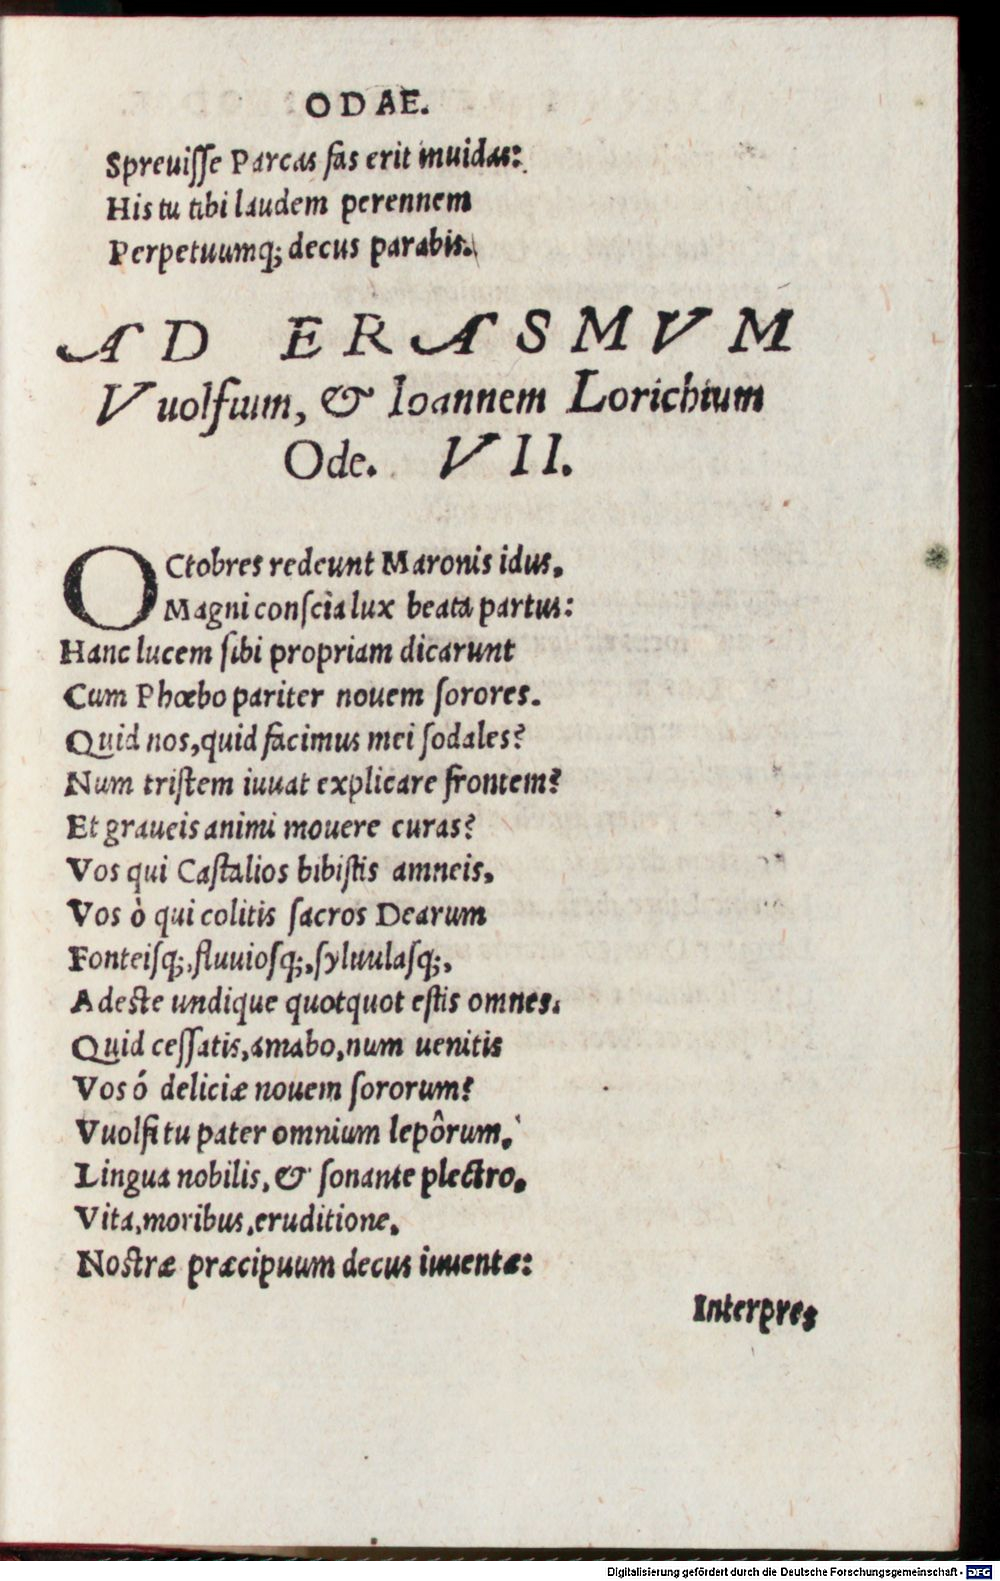 ODAE.
Spreuiſſe Parcas fas erit inuidas:
His tu tibi laudem perennem
Perpetuumq; decus parabis.
AD ERASMVM
Vuolfium, & Ioannem Lorichium
Ode. VII.
OCtobres redeunt Maronis idus,
Magni conſcia lux beata partus:
Hanc lucem ſibi propriam dicarunt
Cum Phœbo pariter nouem ſorores.
Quid nos, quid facimus mei ſodales?
Num triſtem iuuat explicare frontem?
Et graueis animi mouere curas?
Vos qui Caſtalios bibiſtis amneis,
Vos ò qui colitis ſacros Dearum
Fonteiſq;, fluuioſq;, ſyluulaſq;,
Adeſte undique quotquot eſtis omnes.
Quid ceſſatis, amabo, num uenitis
Vos ó deliciæ nouem ſororum?
Vuolfi tu pater omnium lepôrum,
Lingua nobilis, & ſonante plectro,
Vita, moribus, eruditione,
Noſtræ præcipuum decus iuuentæ:
Interpres
Digitalisierung gefördert durch die Deutsche Forschungsgemeinschaft - DFG